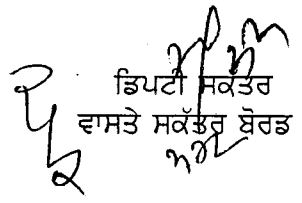 ਡਿਪਟੀ ਸਕੱਤਰ
ਵਾਸਤੇ ਸਕੱਤਰ ਬੋਰਡ